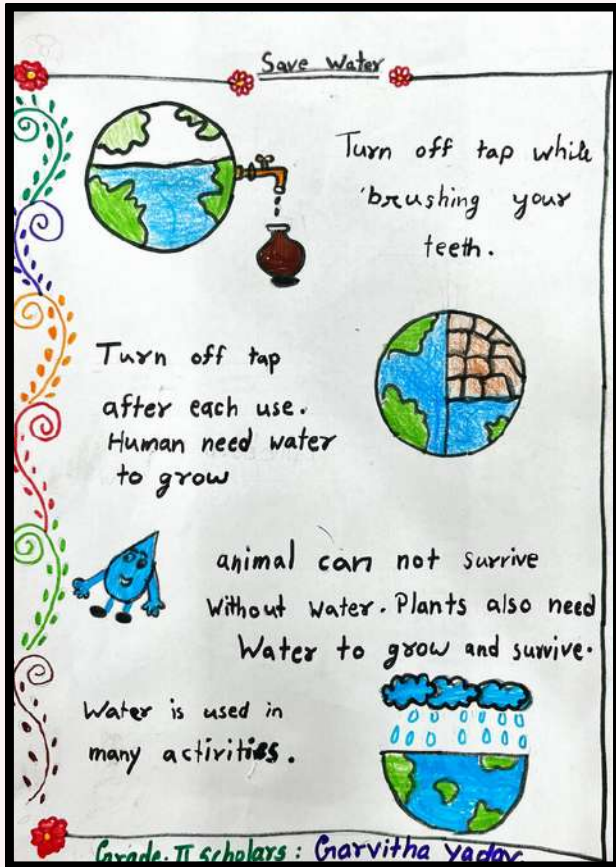 Save Water
Turn off tap while
brushing your
teeth.
Turn off tap
after each use.
Human need water
to grow
animal can not survive
Without water. Plants also need
Water to grow and survive.
Water is used in
many activities.
Grade-II scholars: Garvitha Yadav